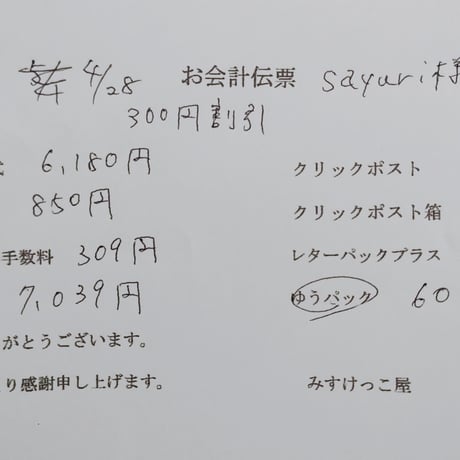 4/28 お会計伝票 sayuri様
300円割引
6,180円 クリックポスト
850円 クリックポスト箱
手数料 309円 レターパックプラス
7,039円 ゆうパック 60
がとうございます。
り感謝申し上げます。 みすけっこ屋